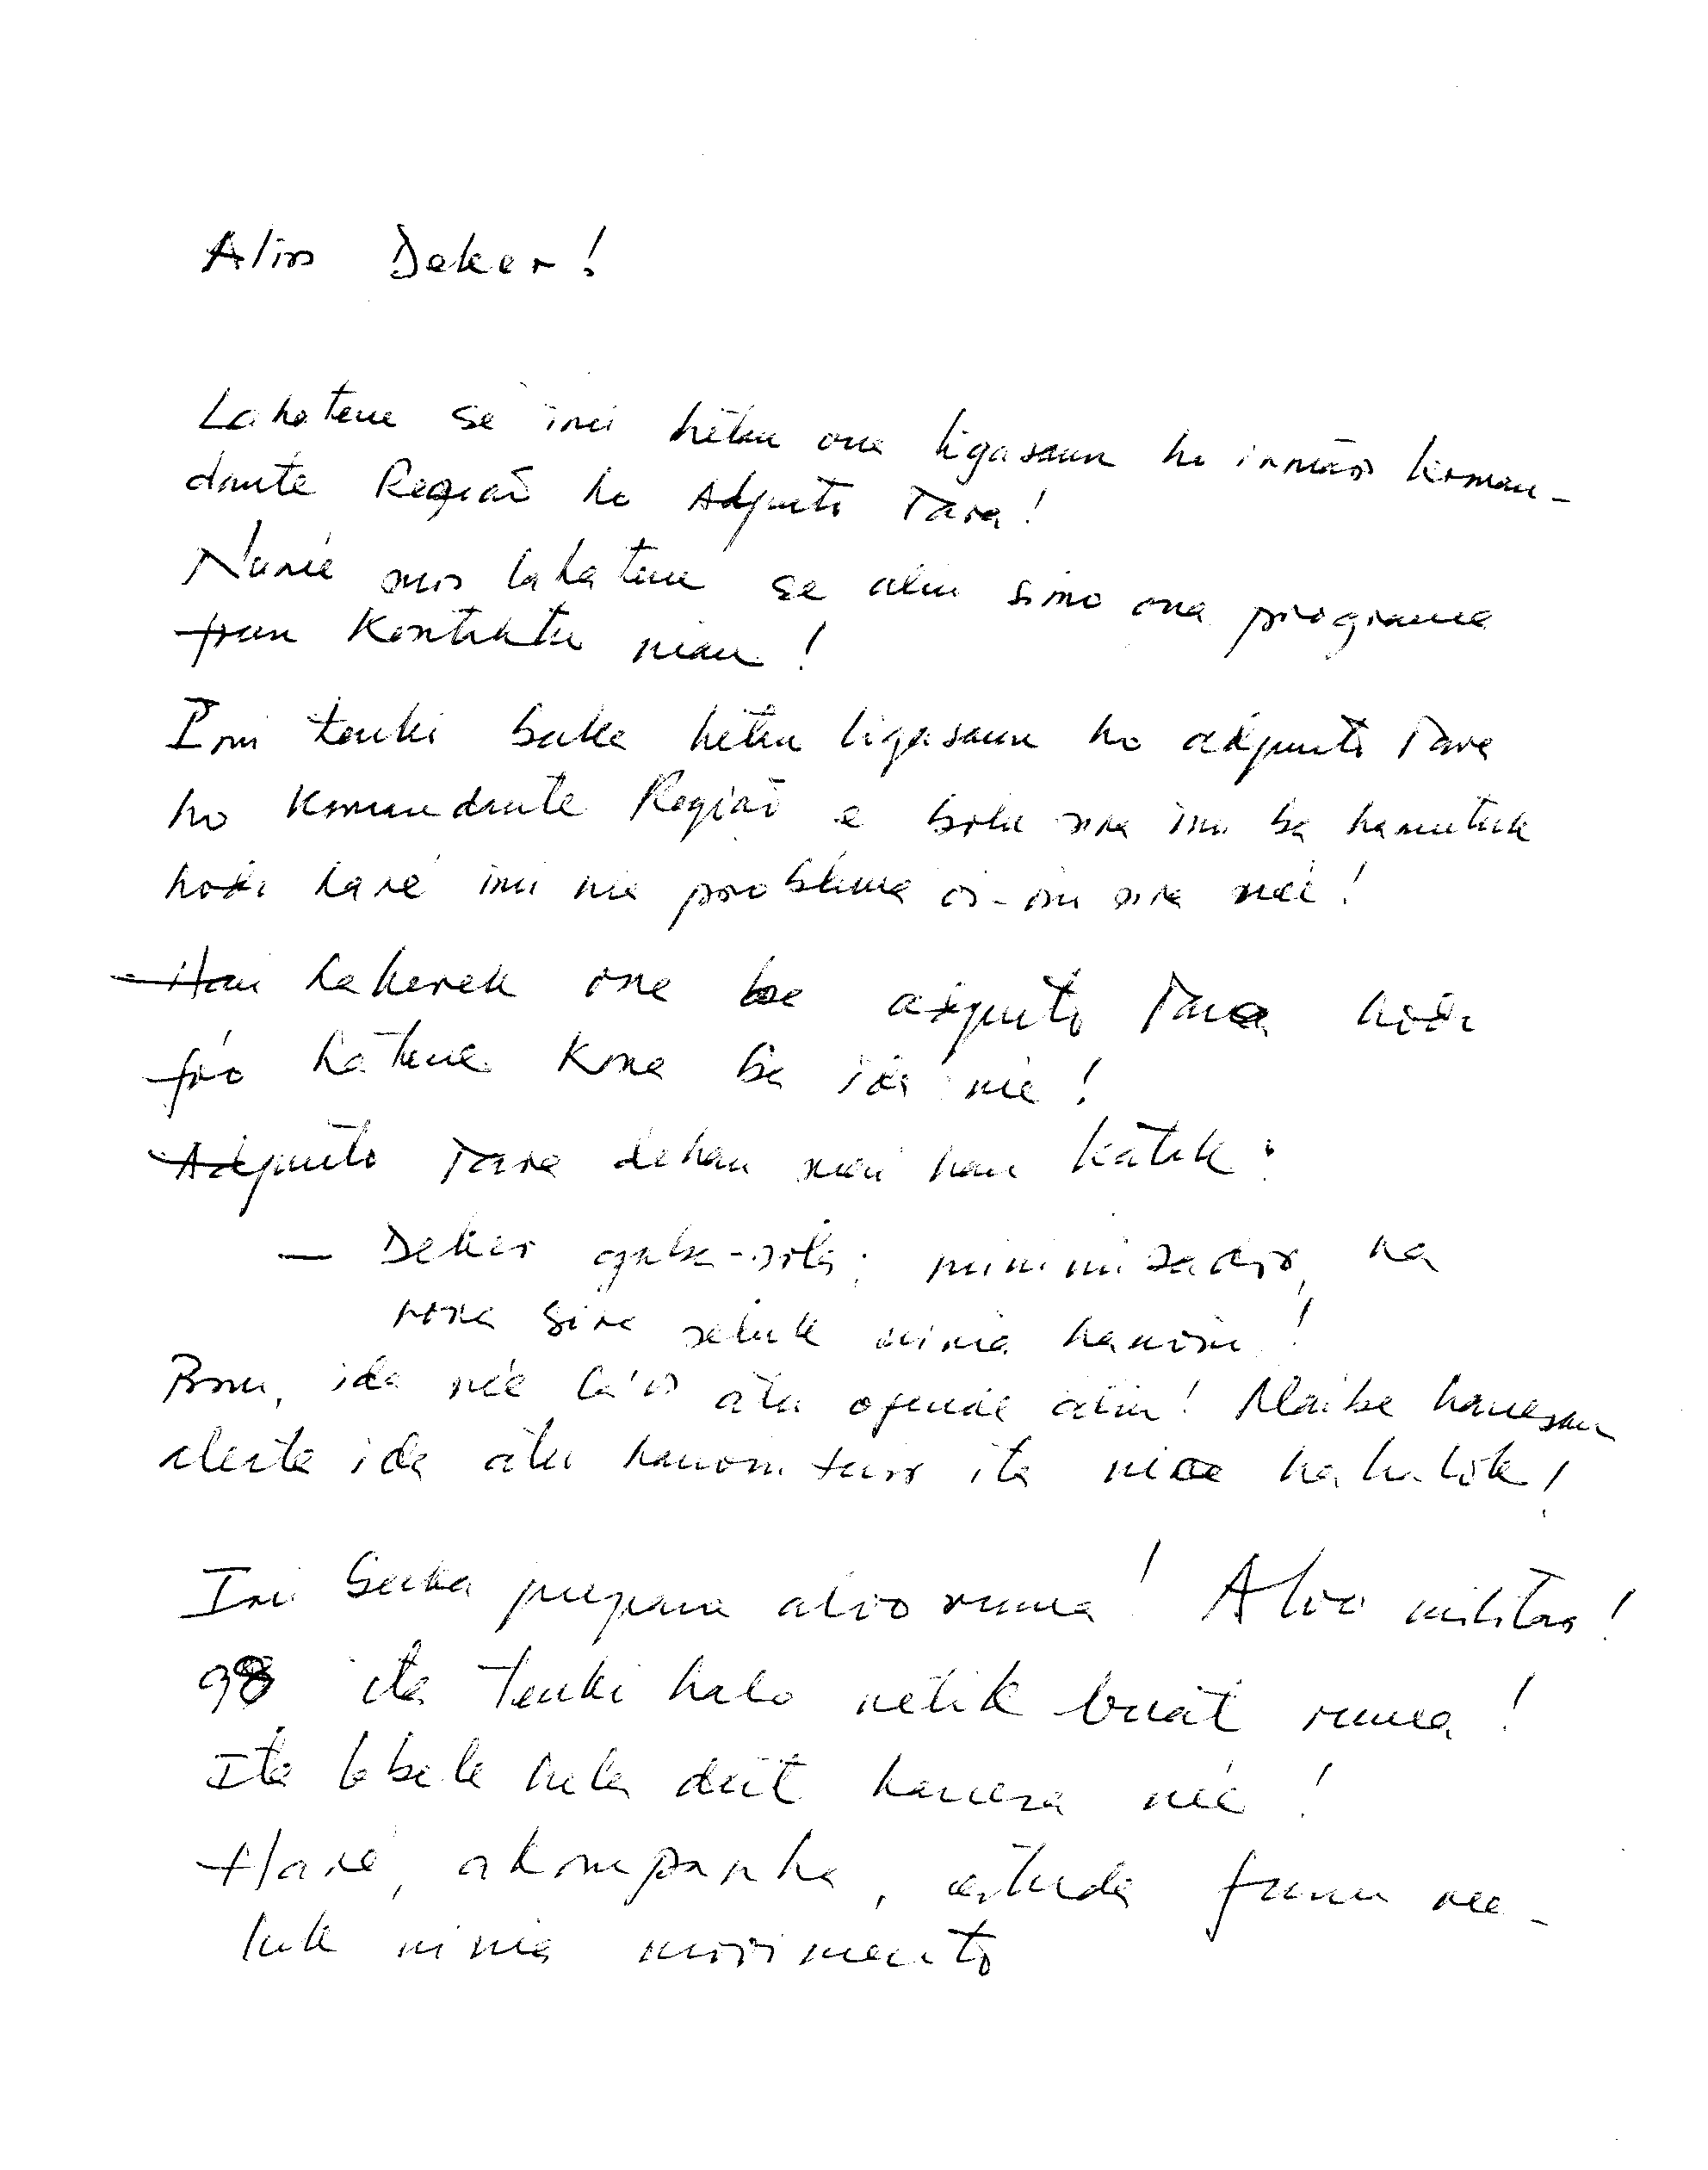 Alin Deker!
La hatene se imi hetan ona ligasaun ho irmão koman-
dante Região ho Adjunto Tara!
Nuné mos la hatene se alin simo ona programa
foun Kontaktu nian!
Imi tenki buka hetan ligasaun ho adjunto Tara
ho Komandante Região e bolu sira imi ba hamutuk
hodi haré imi nia problema oi-oin sira neé!
Hau hakerek ona ba adjunto Tara hodi
fó hatene kona ba ida né!
Adjunto Tara dehan mai hau katak:
— Deker gaba-, minimizador, ka
rona sira seluk ninia hanoin!
Bom, ida né'e la'os atu ofende alin! Maibe hanesan
alerta ida atu hanoin tuir ita nia hahalok!
Imi buka prepara alvo ruma! Alvo militar!
98 ita tenki halo netik buat ruma!
Ita labele hela deit hanesa neé!
Haré, akompanha, estuda funu ma-
luk ninia movimento